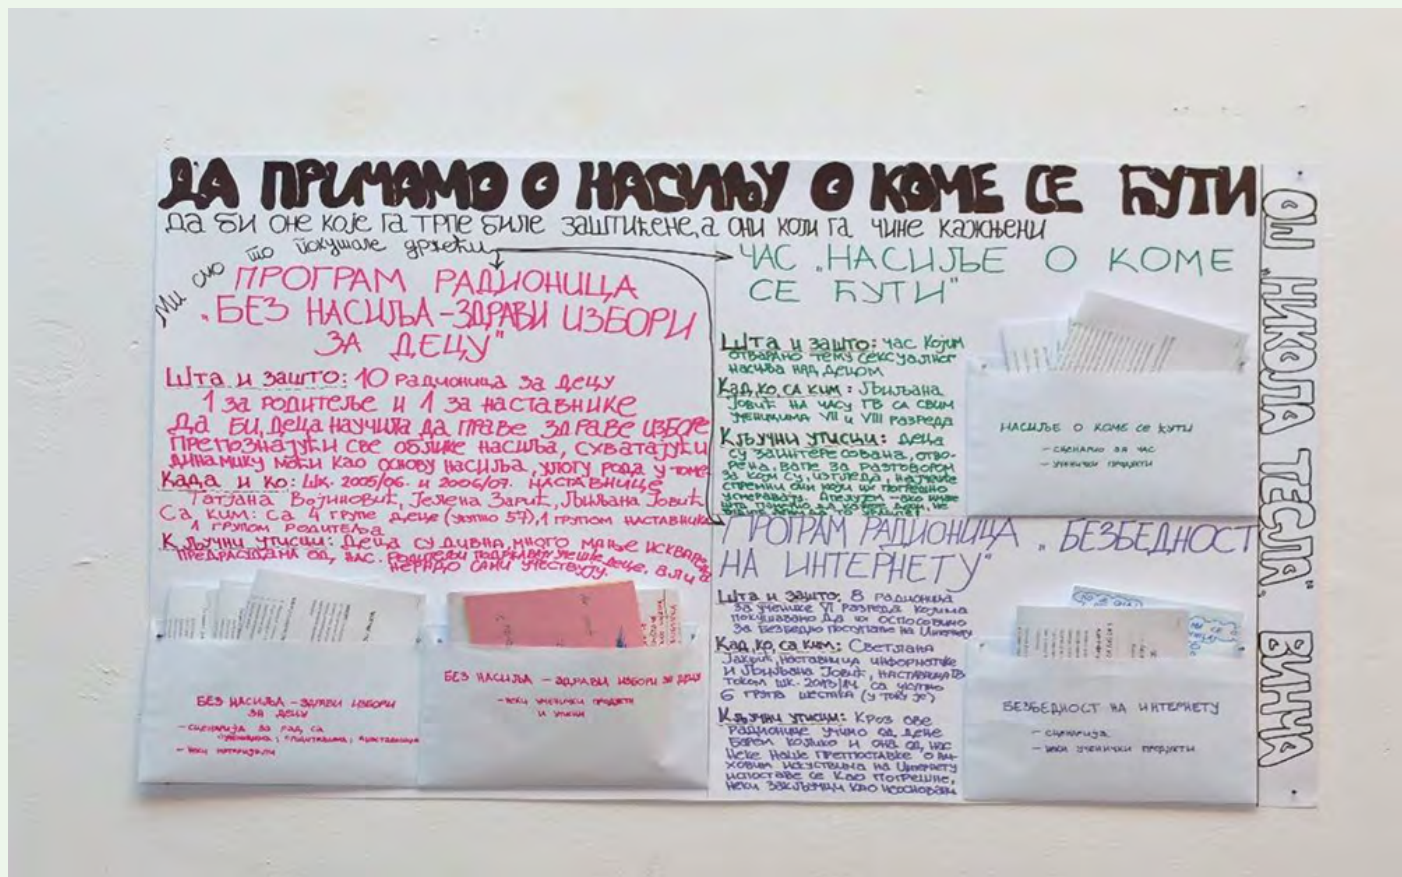 ДА ПРИЧАМО О НАСИЉУ О КОМЕ СЕ ЋУТИ
ДА БИ ОНЕ КОЈЕ ГА ТРПЕ БИЛЕ ЗАШТИЋЕНЕ, А ОНИ КОЈИ ГА ЧИНЕ КАЖЊЕНИ
Ми смо то покушале држећи
ПРОГРАМ РАДИОНИЦА
„БЕЗ НАСИЉА – ЗДРАВИ ИЗБОРИ
ЗА ДЕЦУ"
Шта и зашто: 10 радионица за децу
1 за родитеље и 1 за наставнике
Да би деца научила да праве здраве изборе
препознајући све облике насиља, схватајући
динамику моћи као основу насиља, улогу рода у томе
Када и ко: шк. 2005/06. и 2006/07. наставнице
Татјана Војиновић, Јелена Зарић, Љиљана Јовић
Са ким: са 4 групе деце (укупно 57), 1 групом наставника
1 групом родитеља
Кључни утисци: деца су дивна, много мање
предрасудама од нас. Родитељи подржавају учешће деце, али
нерадо сами учествују.
БЕЗ НАСИЉА – ЗДРАВИ ИЗБОРИ
ЗА ДЕЦУ
– сценарија за рад са
– неки материјали
БЕЗ НАСИЉА – ЗДРАВИ ИЗБОРИ ЗА ДЕЦУ
– неки ученички продукти
и утисци
ЧАС „НАСИЉЕ О КОМЕ
СЕ ЋУТИ"
Шта и зашто: час којим
отварамо тему сексуалног
насиља над децом
Кад, ко, са ким: Љиљана
Јовић на часу ГВ са својим
ученицима VII и VIII разреда
Кључни утисци: деца
су заинтересована, отво-
рена, вапе за разговором
за који су, изгледа, најчешће
спремни они који их погрешно
усмеравају.
НАСИЉЕ О КОМЕ СЕ ЋУТИ
– сценарио за час
– ученички продукти
ПРОГРАМ РАДИОНИЦА „БЕЗБЕДНОСТ
НА ИНТЕРНЕТУ"
Шта и зашто: 8 радионица
за ученике VI разреда којима
покушавамо да их оспособимо
за безбедно поступање на Интернету
Кад, ко, са ким: Светлана
наставница информатике
и Љиљана Јовић, наставница ГВ
током шк. 2013/14 са укупно
6 група шестака (у току је)
Кључни утисци: Кроз ове
радионице учимо од деце
барем колико и она од нас
Неке наше претпоставке о њи-
ховим искуствима на Интернету
испоставе се као погрешне,
неки закључци као неосновани
БЕЗБЕДНОСТ НА ИНТЕРНЕТУ
– сценарија
– неки ученички продукти
ОШ „НИКОЛА ТЕСЛА", ВИНЧА